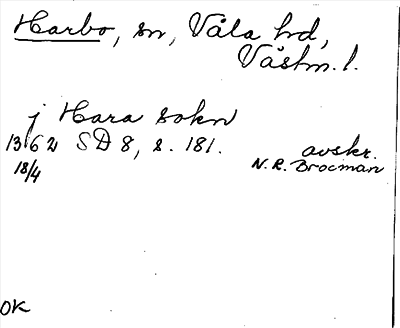 Harbo, sn, Våla hd,
Västm. l.
j Hara sokn
1362 SD 8, s. 181. avskr.
18/4 N. R. Brocman
OK